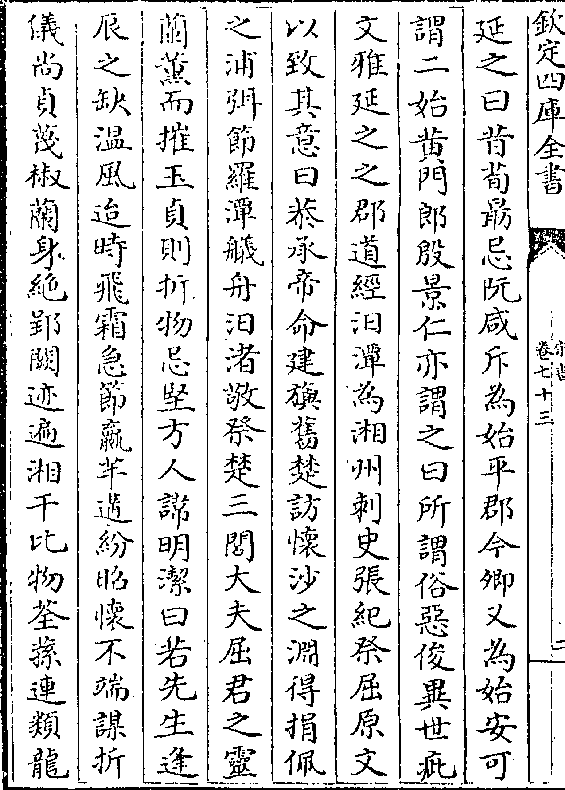 欽定四庫全書
宋書
卷七十三
二
延之曰昔荀勗忌阮咸斥為始平郡今卿又為始安可
謂二始黄門郎殷景仁亦謂之曰所謂俗惡俊異世疵
文雅延之之郡道經汨潭為湘州刺史張紀祭屈原文
以致其意曰恭承帝命建旟舊楚訪懷沙之淵得捐佩
之浦弭節羅潭艤舟汨渚敬祭楚三閭大夫屈君之靈
蘭薰而摧玉貞則折物忌堅方人諱明潔曰若先生逢
辰之缺温風迨時飛霜急節嬴芊遘紛昭懷不端謀折
儀尚貞蔑椒蘭身絶郢闕迹遍湘干比物荃蓀連類龍